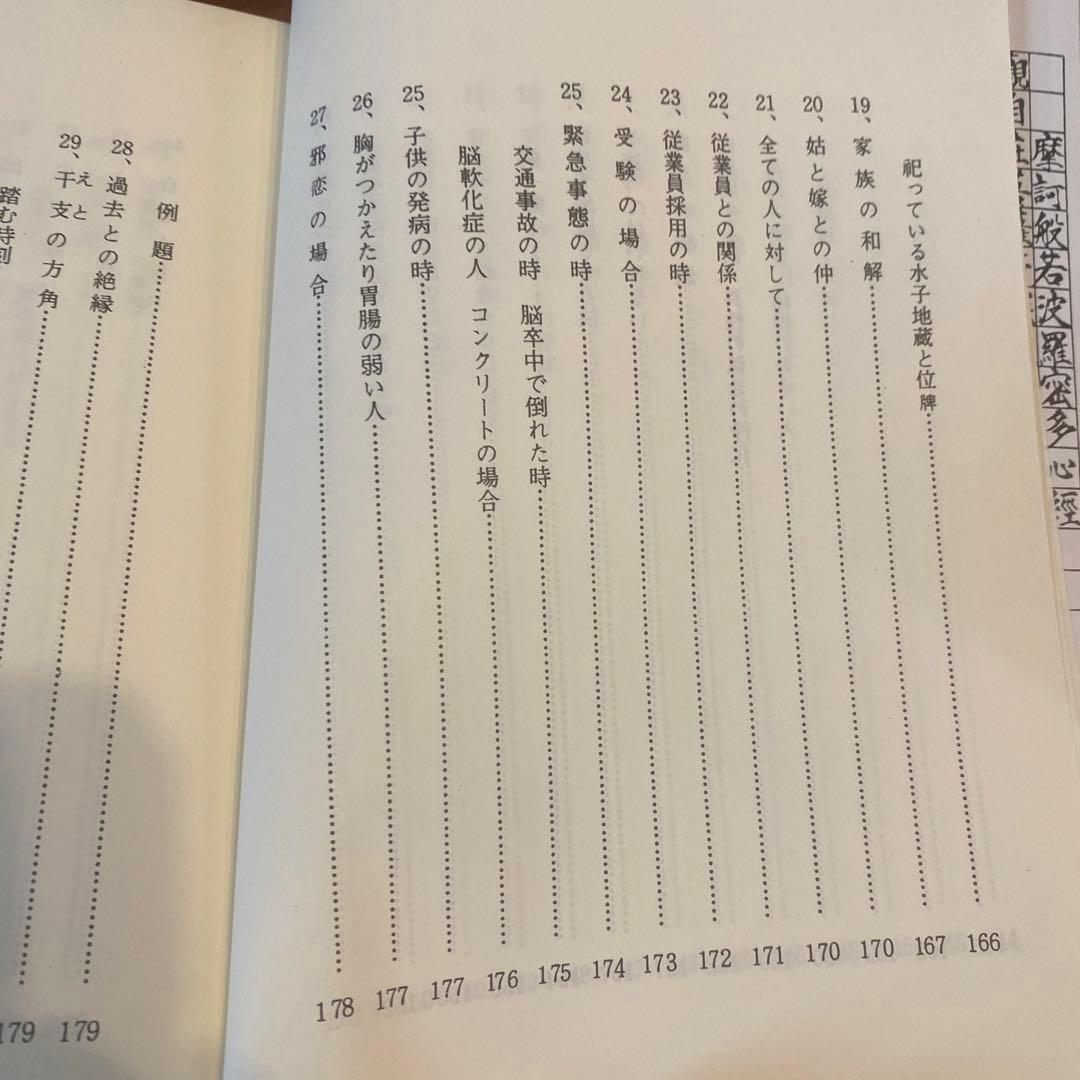 摩訶般若波羅密多心經
祀っている水子地蔵と位牌……166
19、家族の和解……167
20、姑と嫁との仲……170
21、全ての人に対して……170
22、従業員との関係……171
23、従業員採用の時……172
24、受験の場合……173
25、緊急事態の時……174
交通事故の時　脳卒中で倒れた時……175
脳軟化症の人　コンクリートの場合……176
25、子供の発病の時……177
26、胸がつかえたり胃腸の弱い人……177
27、邪恋の場合……178
例題……179
28、過去との絶縁……179
えと
29、干支の方角……
踏む時刻